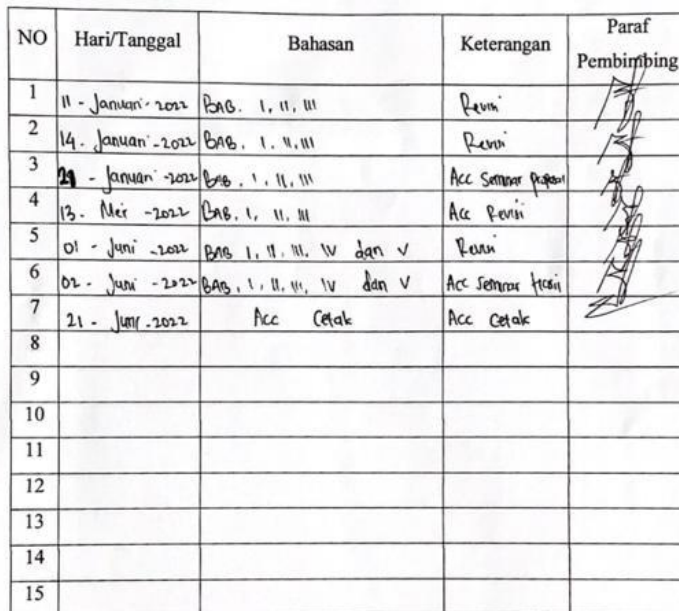 NO Hari/Tanggal Bahasan Keterangan Paraf Pembimbing
1 11 - Januari - 2022 BAB. I, II, III Revisi
2 14 - Januari - 2022 BAB. I, II, III Revisi
3 21 - Januari - 2022 BAB. I, II, III Acc Seminar proposal
4 13 - Mei - 2022 BAB. I, II, III Acc Revisi
5 01 - Juni - 2022 BAB I, II, III, IV dan V Revisi
6 02 - Juni - 2022 BAB, I, II, III, IV dan V Acc Seminar Hasil
7 21 - Juni - 2022 Acc Cetak Acc Cetak
8
9
10
11
12
13
14
15